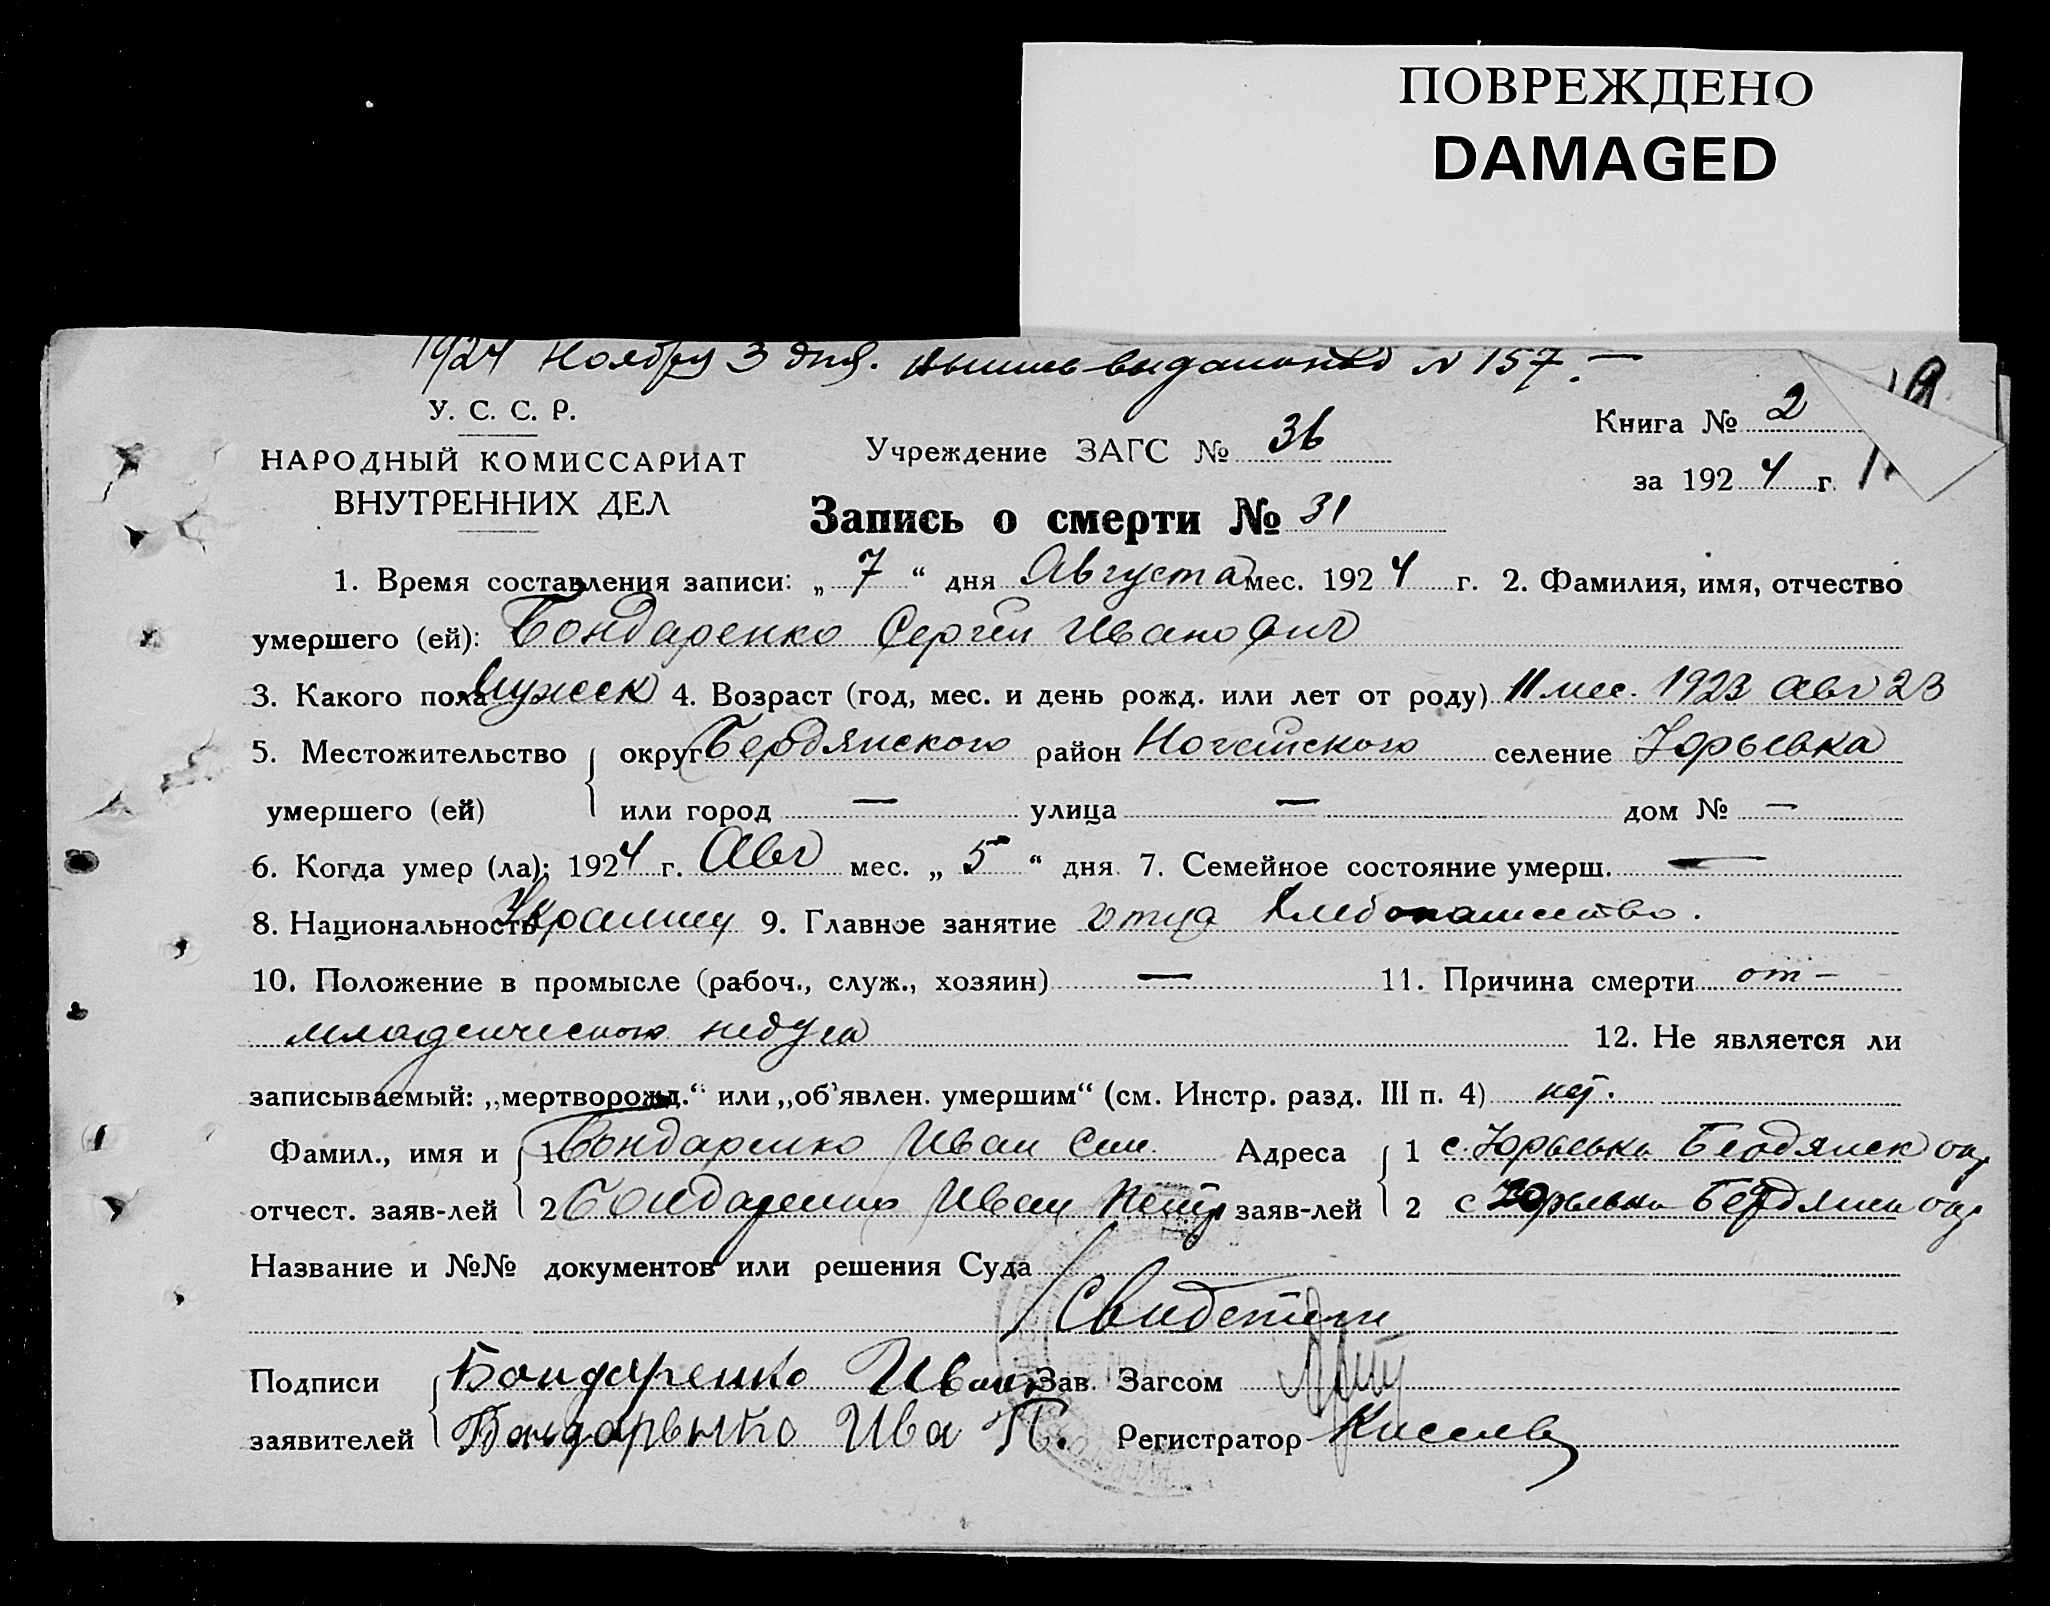 ПОВРЕЖДЕНО
DAMAGED
1924 Ноября 3 дня. Выпись выдана № 157.—
У. С. С. Р.
НАРОДНЫЙ КОМИССАРИАТ
ВНУТРЕННИХ ДЕЛ
Учреждение ЗАГС № 36
Книга № 2
за 1924 г.
Запись о смерти № 31
1. Время составления записи: „ 7 “ дня Августа мес. 1924 г. 2. Фамилия, имя, отчество
умершего (ей): Бондаренко Сергей Иванович
3. Какого пола Мужеск 4. Возраст (год, мес. и день рожд. или лет от роду) 11 мес. 1923 Авг 23
5. Местожительство округ Бердянского район Ногайского селение Юрьевка
умершего (ей) или город — улица — дом № —
6. Когда умер (ла); 1924 г. Авг мес. „ 5 “ дня 7. Семейное состояние умерш. —
8. Национальность Украинец 9. Главное занятие отца Хлебопашество.
10. Положение в промысле (рабоч., служ., хозяин) — 11. Причина смерти от –
младенческого недуга 12. Не является ли
записываемый: „мертворожд.“ или „об'явлен. умершим“ (см. Инстр. разд. III п. 4) нет.
Фамил., имя и 1 Бондаренко Иван Сем. Адреса 1 с. Юрьевка Бердянск окр
отчест. заяв-лей 2 Бондаренко Иван Петр заяв-лей 2 с Юрьевка Бердянск окр
Название и №№ документов или решения Суда
Свидетели
Подписи Бондаренко Иван Зав. Загсом
заявителей Бондарынко Ива П. Регистратор Киселев